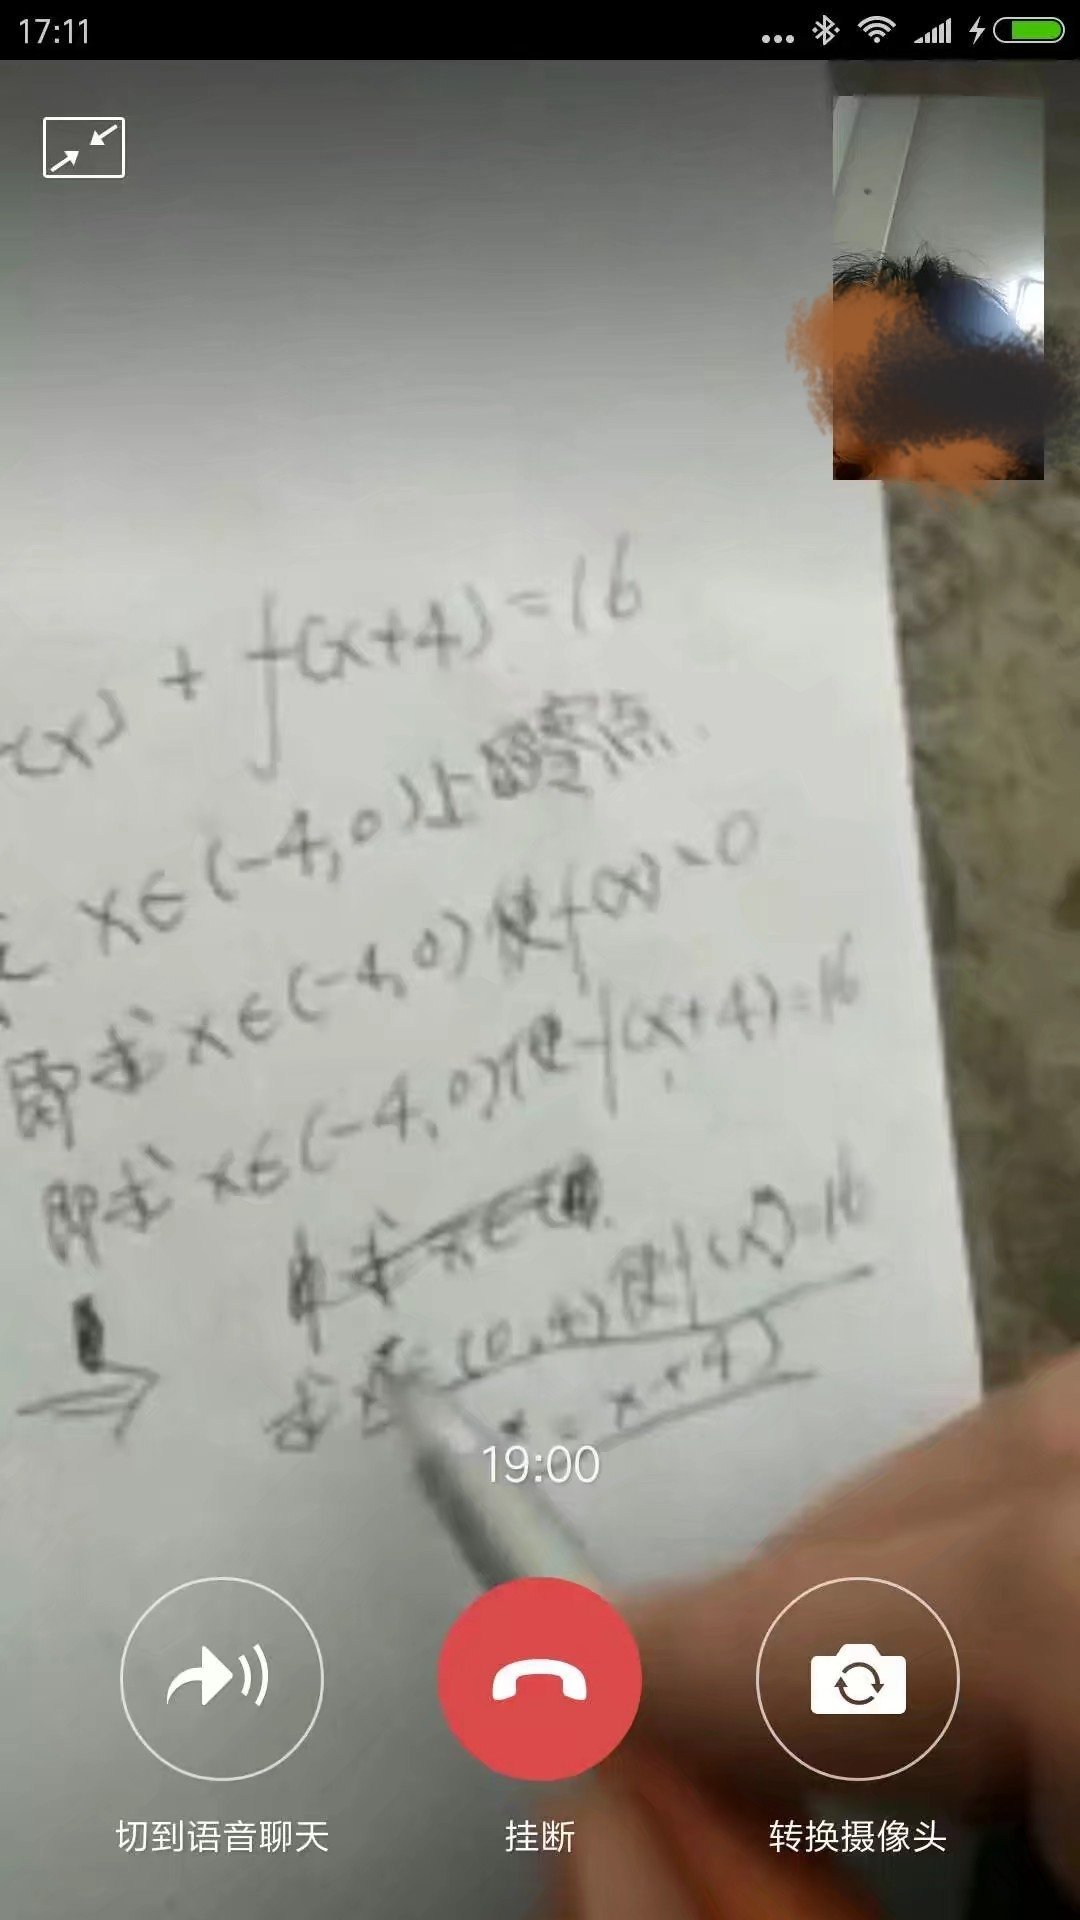 17:11
(x) + f(x+4) = 16
x∈(-4,0)上的零点
即求x∈(-4,0)使f(x)=0
即求x∈(-4,0)使f(x+4)=16
求x∈
求x∈(0,4)使f(x)=16
x=x+4
19:00
切到语音聊天
挂断
转换摄像头